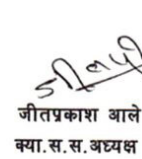 जीतप्रकाश आले
क्या.स.स.अध्यक्ष